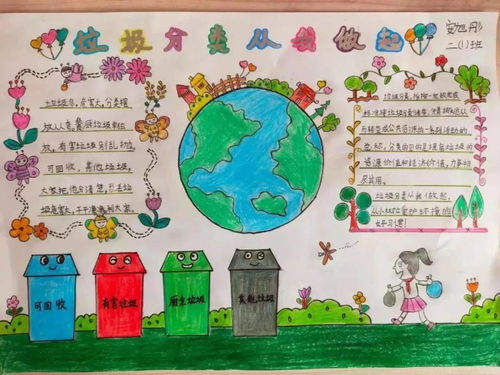 垃圾分类从我做起
安旭彤
二(1)班
垃圾多,危害大,分类摆
放人人夸,餐厨垃圾单独
放,有害垃圾别乱放
可回收,其他垃圾
大家把他分清楚,别丢垃
圾危害大,干干净净利大家。
垃圾分类,指按一定规定或
标准将垃圾分类储存、
而转变成公共资源的一系列活动的
总称,分类的目的是提高垃圾的
资源价值和经济价值,力争物
尽其用。
垃圾分类从我做起,
从小树立爱护环境的
好习惯!
可回收
有害垃圾
厨余垃圾
其他垃圾